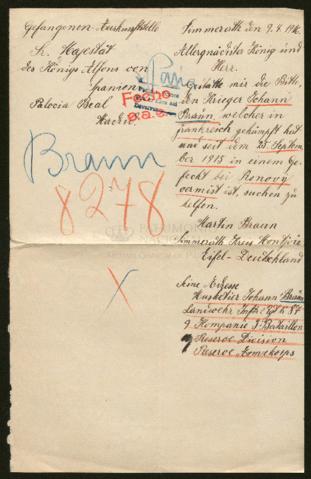 Gefangenen-Auskunftstelle
Sr. Majestät
des Königs Alfons von
Spanien
Palocia Real
Madrid
Simmerath den 9.4.
Allergnädigster König und
Herr.
Gestatte mir die Bitte,
den Krieger Johann
Braun, welcher in
Frankreich gekämpft hat
und seit dem 25. Septem
ber 1915 in einem Ge
fecht bei
vermist ist, suchen zu
helfen.
Martin Braun
Simmerath Kreis Montjoie
Eifel-Deutschland
Fecho
Braun
8278
X
Seine Adresse
Musketier Johann Braun
Landwehr Inft: Rgt N. 87
9 Kompanie 3 Bataillon
9 Reserve Division
Reserve Armekorps